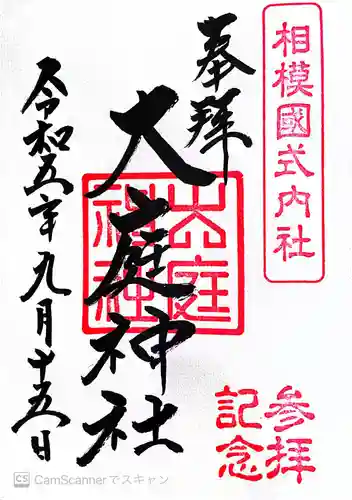 相模國式内社
奉拝
大庭神社
大庭神社
令和五年九月十五日
参拝
記念
CS CamScannerでスキャン